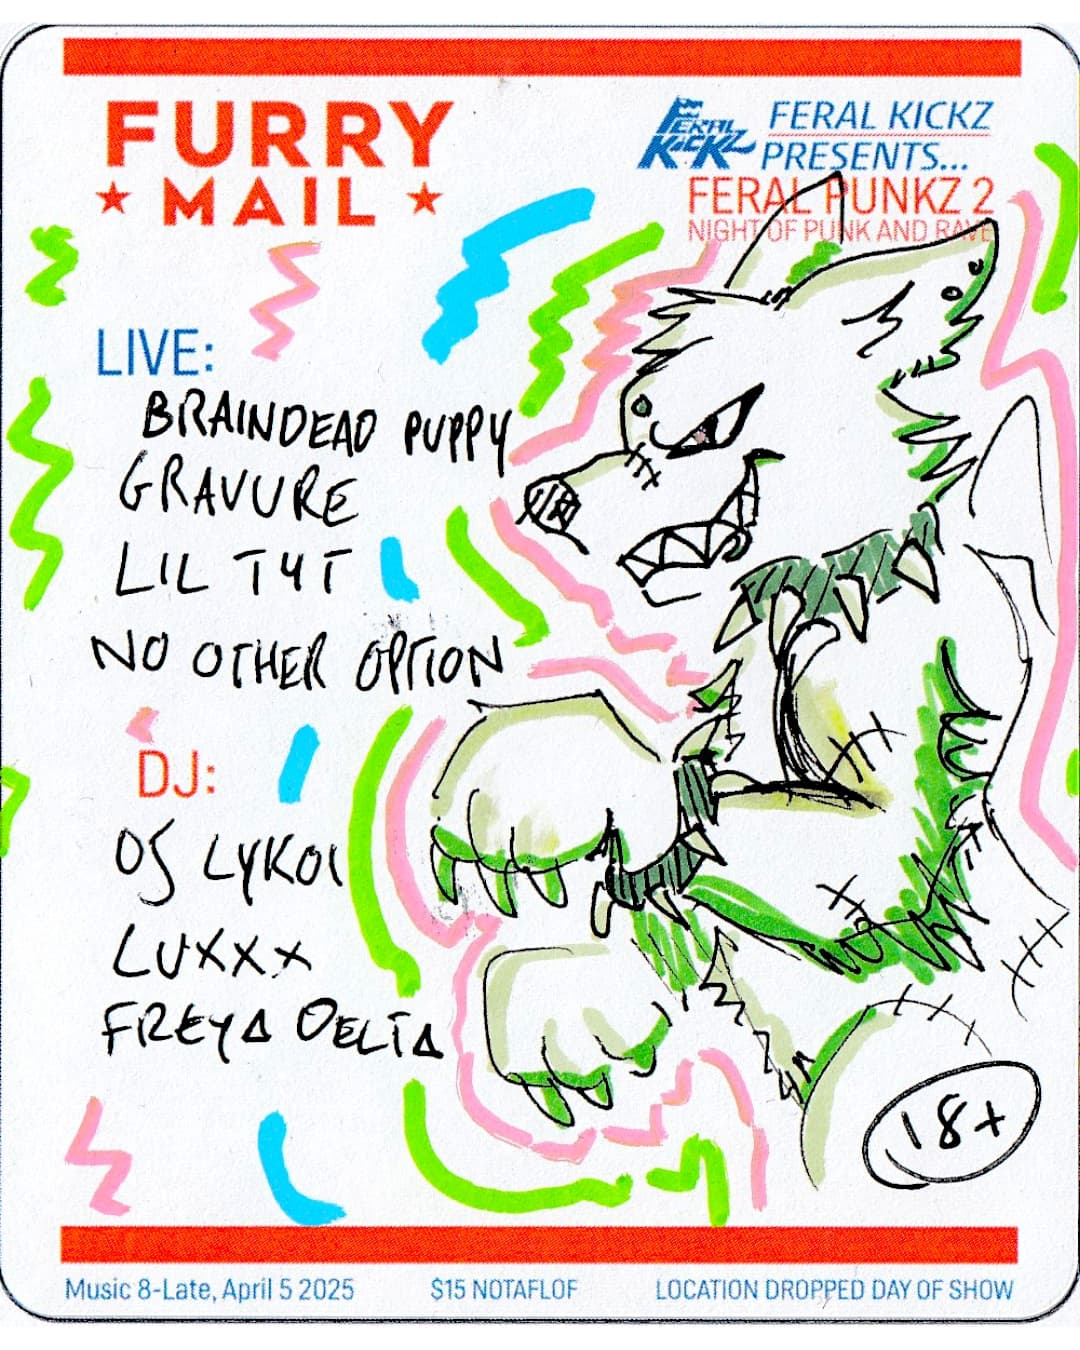 FURRY
★ MAIL ★
FERAL KICKZ
FERAL KICKZ
PRESENTS...
FERAL PUNKZ 2
NIGHT OF PUNK AND RAVE
LIVE:
BRAINDEAD PUPPY
GRAVURE
LIL TYT
NO OTHER OPTION
DJ:
DJ LYKOI
LUXXX
FREYA DELTA
18+
Music 8-Late, April 5 2025
$15 NOTAFLOF
LOCATION DROPPED DAY OF SHOW